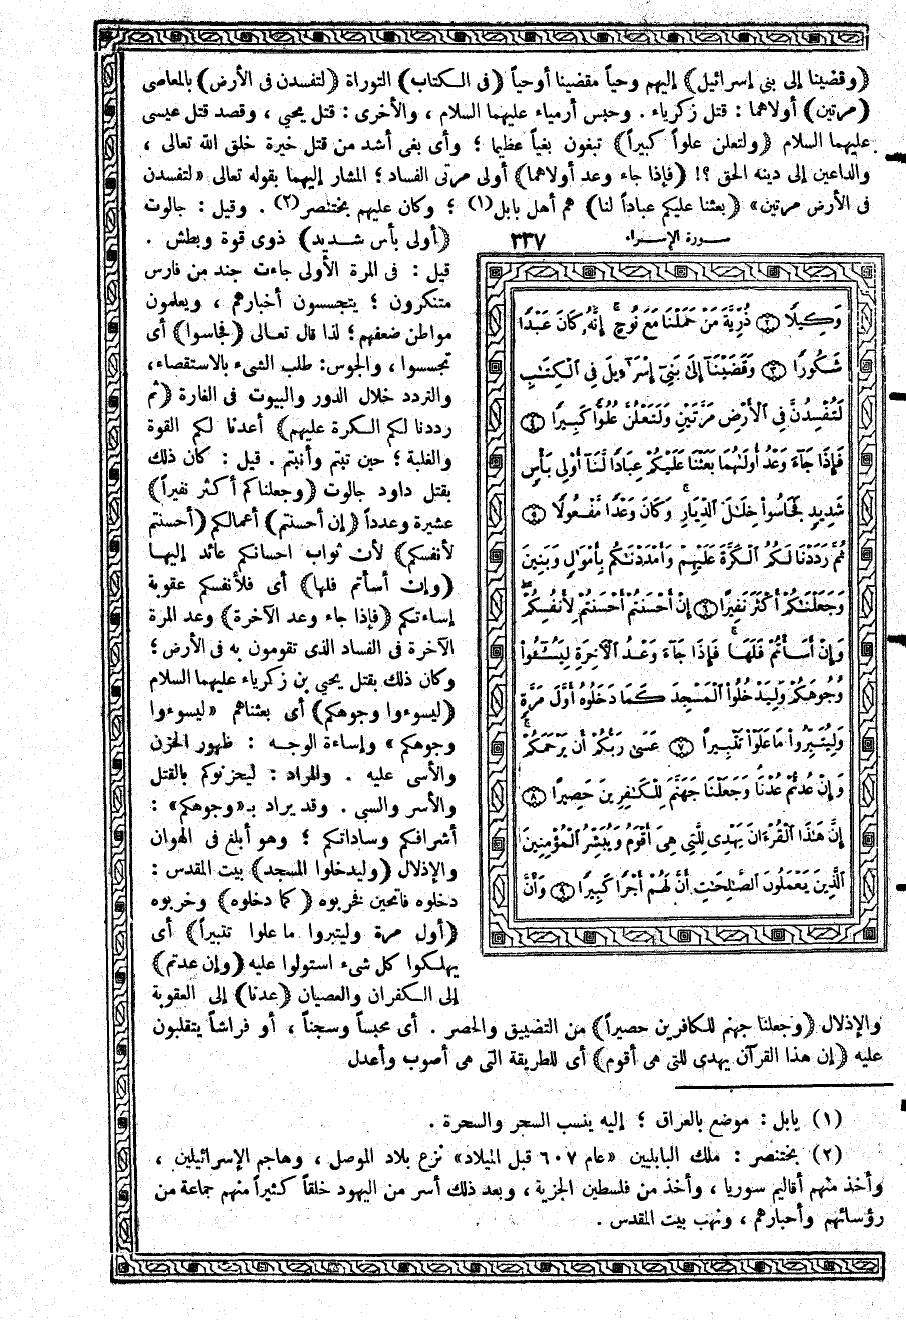 (وقضينا إلى بنى إسرائيل) إليهم وحياً مقضيناً أوحياً (فى الكتاب) التوراة (لتفسدن فى الأرض) بالمعاصى
(مرتين) أولاهما : قتل زكرياء . وحبس أرمياء عليهما السلام ، والأخرى : قتل يحيى ، وقصد قتل عيسى
عليهما السلام (ولتعلن علواً كبيراً) تبغون بغياً عظيما ؛ وأى بغى أشد من قتل خيرة خلق الله تعالى ،
والداعين إلى دينه الحق ؟! (فإذا جاء وعد أولاهما) أولى مرتى الفساد ؛ المشار إليهما بقوله تعالى «لتفسدن
فى الأرض مرتين» (بعثنا عليكم عباداً لنا) هم أهل بابل(١) ؛ وكان عليهم بختنصر(٢) . وقيل : جالوت
(أولى بأس شديد) ذوى قوة وبطش .
قيل : فى المرة الأولى جاءت جند من فارس
متنكرون ؛ يتجسسون أخبارهم ، ويعلمون
مواطن ضعفهم ؛ لذا قال تعالى (فجاسوا) أى
تجسسوا ، والجوس: طلب الشىء بالاستقصاء،
والتردد خلال الدور والبيوت فى الغارة (ثم
رددنا لكم الكرة عليهم) أعدنا لكم القوة
والغلبة ؛ حين تبتم وأنبتم . قيل : كان ذلك
بقتل داود جالوت (وجعلناكم أكثر نفيراً)
عشيرة وعدداً (إن أحسنتم) أعمالكم (أحسنتم
لأنفسكم) لأن ثواب احسانكم عائد إليها
(وإن أسأتم فلها) أى فلأنفسكم عقوبة
إساءتكم (فإذا جاء وعد الآخرة) وعد المرة
الآخرة فى الفساد الذى تقومون به فى الأرض ؛
وكان ذلك بقتل يحيى بن زكرياء عليهما السلام
(ليسوءوا وجوهكم) أى بعثناهم «ليسوءوا
وجوهكم» وإساءة الوجه : ظهور الحزن
والأسى عليه . والمراد : ليحزنوكم بالقتل
والأسر والسبى . وقد يراد بـ«وجوهكم» :
أشرافكم وساداتكم ؛ وهو أبلغ فى الهوان
والإذلال (وليدخلوا المسجد) بيت المقدس :
دخلوه فاتحين فخربوه (كما دخلوه) وخربوه
(أول مرة وليتبروا ما علوا تتبيراً) أى
يهلكوا كل شىء استولوا عليه (وإن عدتم)
إلى الكفران والعصيان (عدنا) إلى العقوبة
سورة الإسراء ٣٣٧
وَكِيلًا ٢ ذُرِّيَّةَ مَنْ حَمَلْنَا مَعَ نُوحٍ ۚ إِنَّهُۥ كَانَ عَبْدًا
شَكُورًا ٣ وَقَضَيْنَآ إِلَىٰ بَنِىٓ إِسْرَٰٓءِيلَ فِى ٱلْكِتَٰبِ
لَتُفْسِدُنَّ فِى ٱلْأَرْضِ مَرَّتَيْنِ وَلَتَعْلُنَّ عُلُوًّا كَبِيرًا ٤
فَإِذَا جَآءَ وَعْدُ أُولَىٰهُمَا بَعَثْنَا عَلَيْكُمْ عِبَادًا لَّنَآ أُولِى بَأْسٍ
شَدِيدٍ فَجَاسُوا۟ خِلَٰلَ ٱلدِّيَارِ ۚ وَكَانَ وَعْدًا مَّفْعُولًا ٥
ثُمَّ رَدَدْنَا لَكُمُ ٱلْكَرَّةَ عَلَيْهِمْ وَأَمْدَدْنَٰكُم بِأَمْوَٰلٍ وَبَنِينَ
وَجَعَلْنَٰكُمْ أَكْثَرَ نَفِيرًا ٦ إِنْ أَحْسَنتُمْ أَحْسَنتُمْ لِأَنفُسِكُمْ ۖ
وَإِنْ أَسَأْتُمْ فَلَهَا ۚ فَإِذَا جَآءَ وَعْدُ ٱلْءَاخِرَةِ لِيَسُۥٓـُٔوا۟
وُجُوهَكُمْ وَلِيَدْخُلُوا۟ ٱلْمَسْجِدَ كَمَا دَخَلُوهُ أَوَّلَ مَرَّةٍ
وَلِيُتَبِّرُوا۟ مَا عَلَوْا۟ تَتْبِيرًا ٧ عَسَىٰ رَبُّكُمْ أَن يَرْحَمَكُمْ ۚ
وَإِنْ عُدتُّمْ عُدْنَا وَجَعَلْنَا جَهَنَّمَ لِلْكَٰفِرِينَ حَصِيرًا ٨
إِنَّ هَٰذَا ٱلْقُرْءَانَ يَهْدِى لِلَّتِى هِىَ أَقْوَمُ وَيُبَشِّرُ ٱلْمُؤْمِنِينَ
ٱلَّذِينَ يَعْمَلُونَ ٱلصَّٰلِحَٰتِ أَنَّ لَهُمْ أَجْرًا كَبِيرًا ٩ وَأَنَّ
والإذلال (وجعلنا جهنم للكافرين حصيراً) من التضييق والحصر . أى محبساً وسجناً ، أو فراشاً يتقلبون
عليه (إن هذا القرآن يهدى للتى هى أقوم) أى للطريقة التى هى أصوب وأعدل
(١) بابل : موضع بالعراق ؛ إليه ينسب السحر والسحرة .
(٢) بختنصر : ملك البابليين «عام ٦٠٧ قبل الميلاد» نزع بلاد الموصل ، وهاجم الإسرائيلين ،
وأخذ منهم أقاليم سوريا ، وأخذ من فلسطين الجزية ، وبعد ذلك أسر من اليهود خلقاً كثيراً منهم جماعة من
رؤسائهم وأحبارهم ، ونهب بيت المقدس .